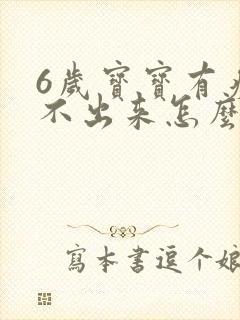 6歲寶寶有
不出来怎麼
寫本書逗个娘